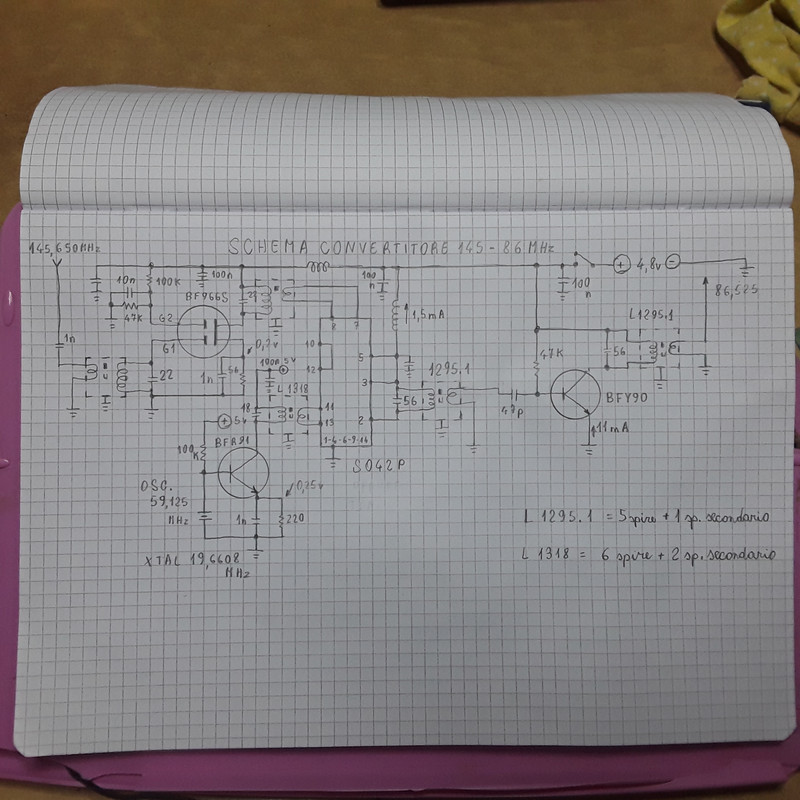 SCHEMA CONVERTITORE 145-86 MHz
145,650MHz
10n
100K
100n
BF966S
47K
G2
G1
1n
22
1n
56
0,2v
100n 5v
L 1318
18
5v
BFR91
100K
OSC.
59,125
MHz
1n
220
0,25v
XTAL 19,6608
MHz
8
7
10
12
11
13
5
3
2
1-4-6-9-14
SO42P
100
n
1,5mA
1295.1
56
47p
47K
56
BFY90
11mA
100
n
+ 4,8v -
86,525
L1295.1
L 1295.1 = 5 spire + 1 sp. secondario
L 1318 = 6 spire + 2 sp. secondario